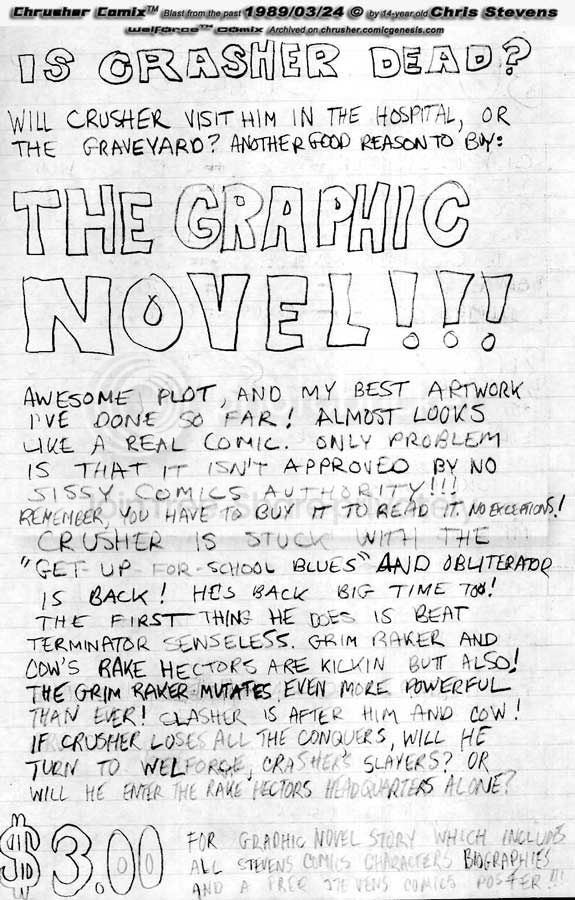 Chrusher Comix™ Blast from the past 1989/03/24 © by 14-year old Chris Stevens
Welforce™ Comix Archived on chrusher.comicgenesis.com
IS CRASHER DEAD?
WILL CRUSHER VISIT HIM IN THE HOSPITAL, OR
THE GRAVEYARD? ANOTHER GOOD REASON TO BUY:
THE GRAPHIC
NOVEL!!!
AWESOME PLOT, AND MY BEST ARTWORK
I'VE DONE SO FAR! ALMOST LOOKS
LIKE A REAL COMIC. ONLY PROBLEM
IS THAT IT ISN'T APPROVED BY NO
SISSY COMICS AUTHORITY!!!
REMEMBER, YOU HAVE TO BUY IT TO READ IT. NO EXCEPTIONS!
CRUSHER IS STUCK WITH THE
"GET UP FOR SCHOOL BLUES" AND OBLITERATOR
IS BACK! HE'S BACK BIG TIME TOO!
THE FIRST THING HE DOES IS BEAT
TERMINATOR SENSELESS. GRIM RAKER AND
COW'S RAKE HECTORS ARE KICKIN BUTT ALSO!
THE GRIM RAKER MUTATES EVEN MORE POWERFUL
THAN EVER! CLASHER IS AFTER HIM AND COW!
IF CRUSHER LOSES ALL THE CONQUERS, WILL HE
TURN TO WELFORCE, CRASHER'S SLAYERS? OR
WILL HE ENTER THE RAKE HECTORS HEADQUARTERS ALONE?
$3.00
FOR GRAPHIC NOVEL STORY WHICH INCLUDES
ALL STEVENS COMICS CHARACTERS BIOGRAPHIES
AND A FREE STEVENS COMICS POSTER!!!